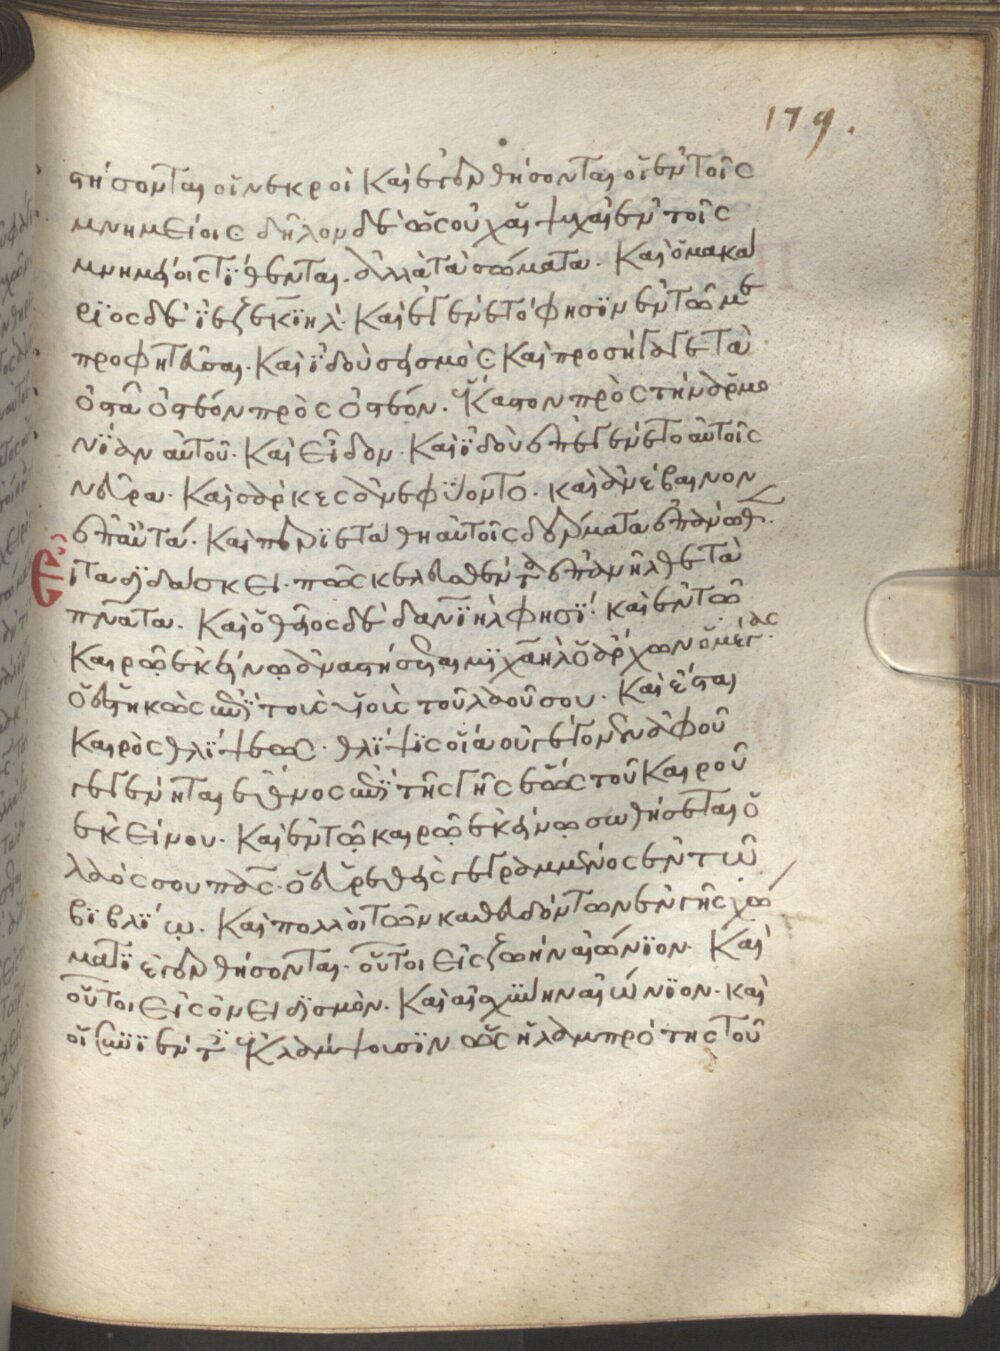 179.
στήσονται οἱ νεκροὶ καὶ ἐγερθήσονται οἱ ἐν τοῖς
μνημείοις δῆλον δὲ ὡς οὐχ αἱ ψυχαὶ ἐν τοῖς
μνημείοις τίθενται. ἀλλὰ τὰ σώματα. Καὶ ὁ μακά
ριος δὲ ἰεζεκιὴλ. Καὶ ἐγένετό φησιν ἐν τῶ με
προφητεῦσαι. Καὶ ἰδοὺ σεισμὸς Καὶ προσήγαγε τὰ
ὀστᾶ ὀστέον πρὸς ὀστέον. ἕκαστον πρὸς τὴν ἁρμο
νίαν αὐτοῦ. Καὶ εἶδον. Καὶ ἰδοὺ ἐπεγένετο αὐτοῖς
νεῦρα. Καὶ σάρκες ἀνεφύοντο. καὶ ἀνέβαινον
ἐπ αὐτά. Καὶ περιετάθη αὐτοῖς δέρματα ἐπάνωθ.
Εἶτα διδάσκει. πῶς κελευσθέντα ἐπανῆλθε τὰ
πνατα. Καὶ ὁ θεῖος δὲ δανιὴλ φησί. καὶ ἐν τῶ
Καιρῶ ἐκείνω ἀναστήσεται μιχαὴλ ὁ ἄρχων ὁ μέγας
ὁ ἑστηκὼς ἐπὶ τοὺς υἱοὺς τοῦ λαοῦ σου. Καὶ ἔσται
Καιρὸς θλίψεως. θλίψις οἵα οὐ γέγονεν ἀφ οὗ
γεγένηται ἔθνος ἐπὶ τῆς γῆς ἕως τοῦ Καιροῦ
ἐκείνου. Καὶ ἐν τῶ καιρῶ ἐκείνω σωθήσεται ὁ
λαός σου πᾶς. ὁ εὑρεθεὶς γεγραμμένος ἐν τῶ
βιβλίω. Καὶ πολλοὶ τῶν καθευδόντων ἐν γῆς χώ
ματι ἐγερθήσονται. οὗτοι εἰς ζωὴν αἰώνιον. Καὶ
οὗτοι εἰς ὀνειδισμὸν. Καὶ αἰσχύνην αἰώνιον. καὶ
οἱ συνιέντες ἐκλάμψουσιν ὡς ἡ λαμπρότης τοῦ